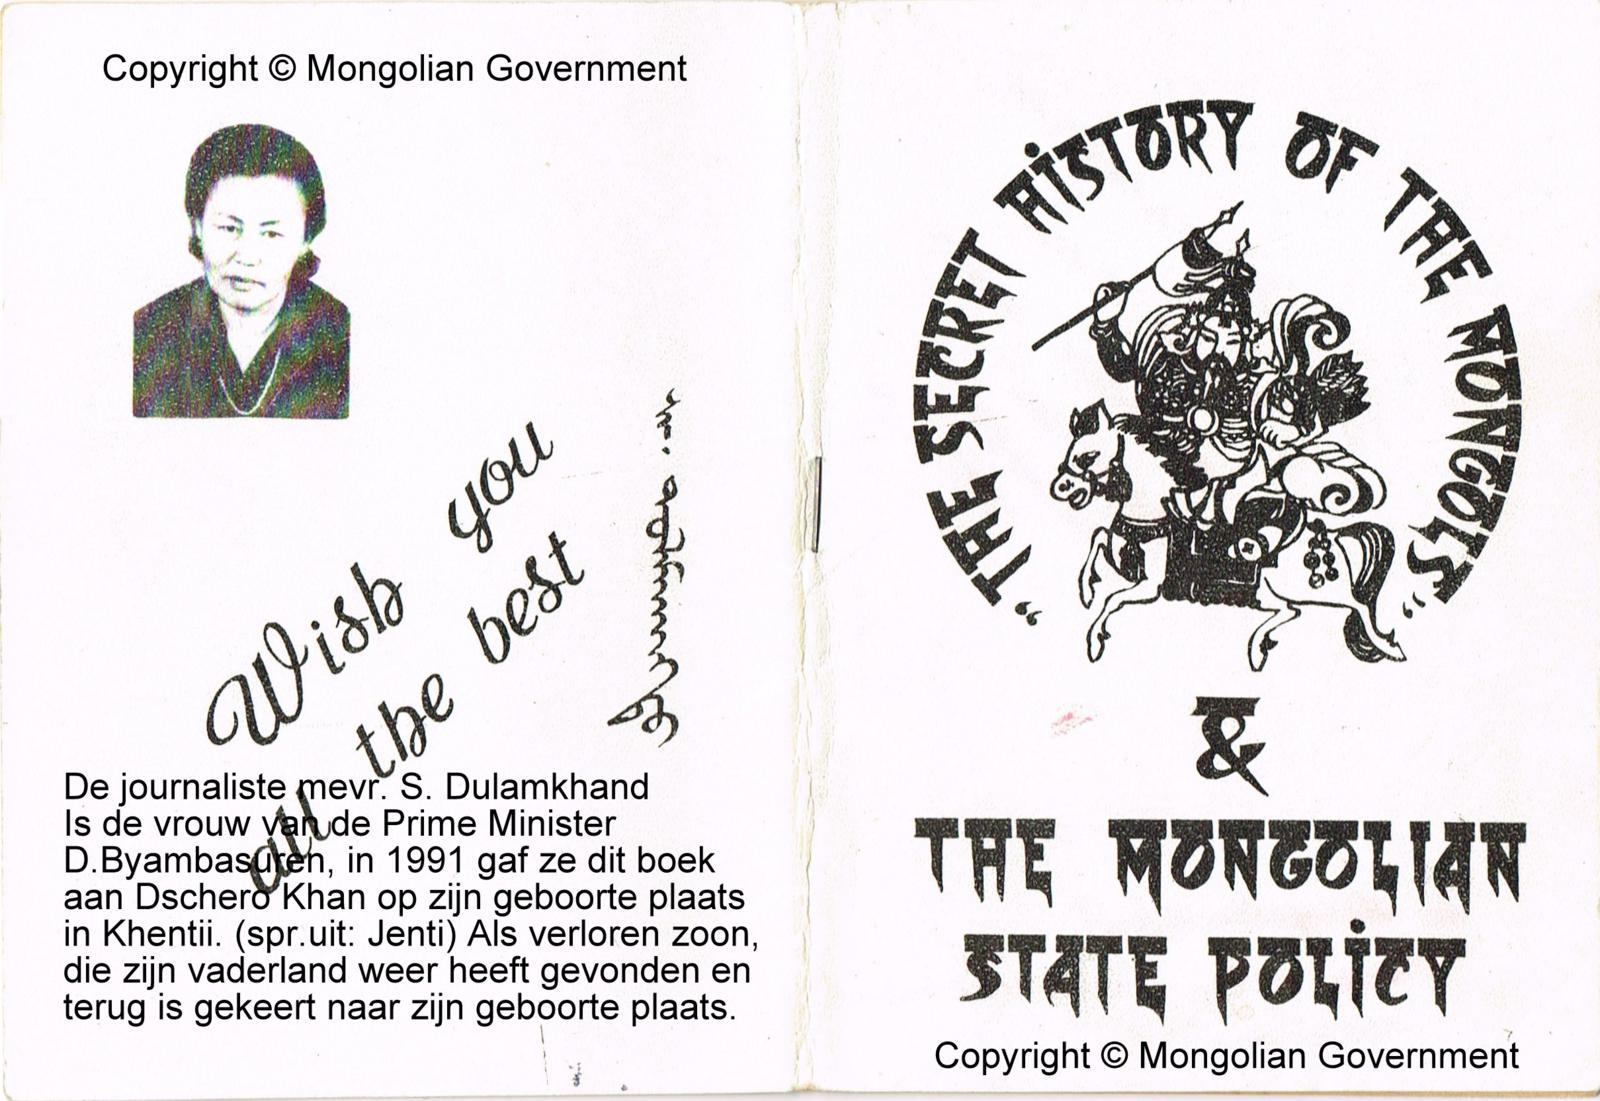 Copyright © Mongolian Government
Wish you
all the best
De journaliste mevr. S. Dulamkhand
Is de vrouw van de Prime Minister
D.Byambasuren, in 1991 gaf ze dit boek
aan Dschero Khan op zijn geboorte plaats
in Khentii. (spr.uit: Jenti) Als verloren zoon,
die zijn vaderland weer heeft gevonden en
terug is gekeert naar zijn geboorte plaats.
"THE SECRET HISTORY OF THE MONGOLS"
&
THE MONGOLIAN
STATE POLICY
Copyright © Mongolian Government